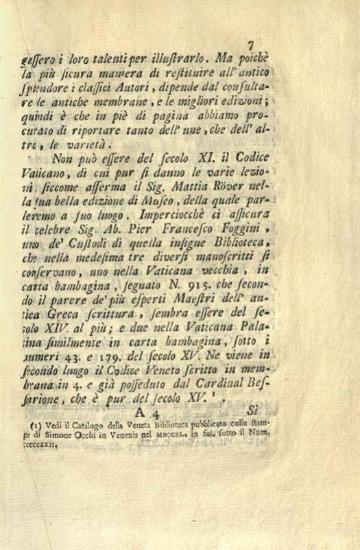 7
gessero i loro talenti per illustrarlo. Ma poichè
la più sicura maniera di restituire all'antico
splendore i classici Autori, dipende dal consulta-
re le antiche membrane, e le migliori edizioni;
quindi è che in piè di pagina abbiamo pro-
curato di riportare tanto dell'une, che dell'al-
tre, le varietà.
Non può essere del secolo XI. il Codice
Vaticano, di cui pur si danno le varie lezio-
ni, siccome asserma il Sig. Mattia Röver nel-
la sua bella edizione di Museo, della quale par-
leremo a suo luogo. Imperciocchè ci assicura
il celebre Sig. Ab. Pier Francesco Foggini,
uno de' Custodi di quella insigne Biblioteca,
che nella medesima tre diversi manoscritti si
conservano, uno nella Vaticana vecchia, in
carta bambagina, segnato N. 915. che secon-
do il parere de' più esperti Maestri dell'an-
tica Greca scrittura, sembra essere del se-
colo XIV. al più; e due nella Vaticana Pala-
tina similmente in carta bambagina, sotto i
numeri 43. e 179. del secolo XV. Ne viene in
secondo luogo il Codice Veneto scritto in mem-
brana in 4. e già posseduto dal Cardinal Bes-
sarione, che è pur del secolo XV. ¹.
A 4 Si
(1) Vedi il Catalogo della Veneta Biblioteca pubblicato colle stam-
pe di Simone Occhi in Venezia nel MDCCXL. in fol. sotto il Num.